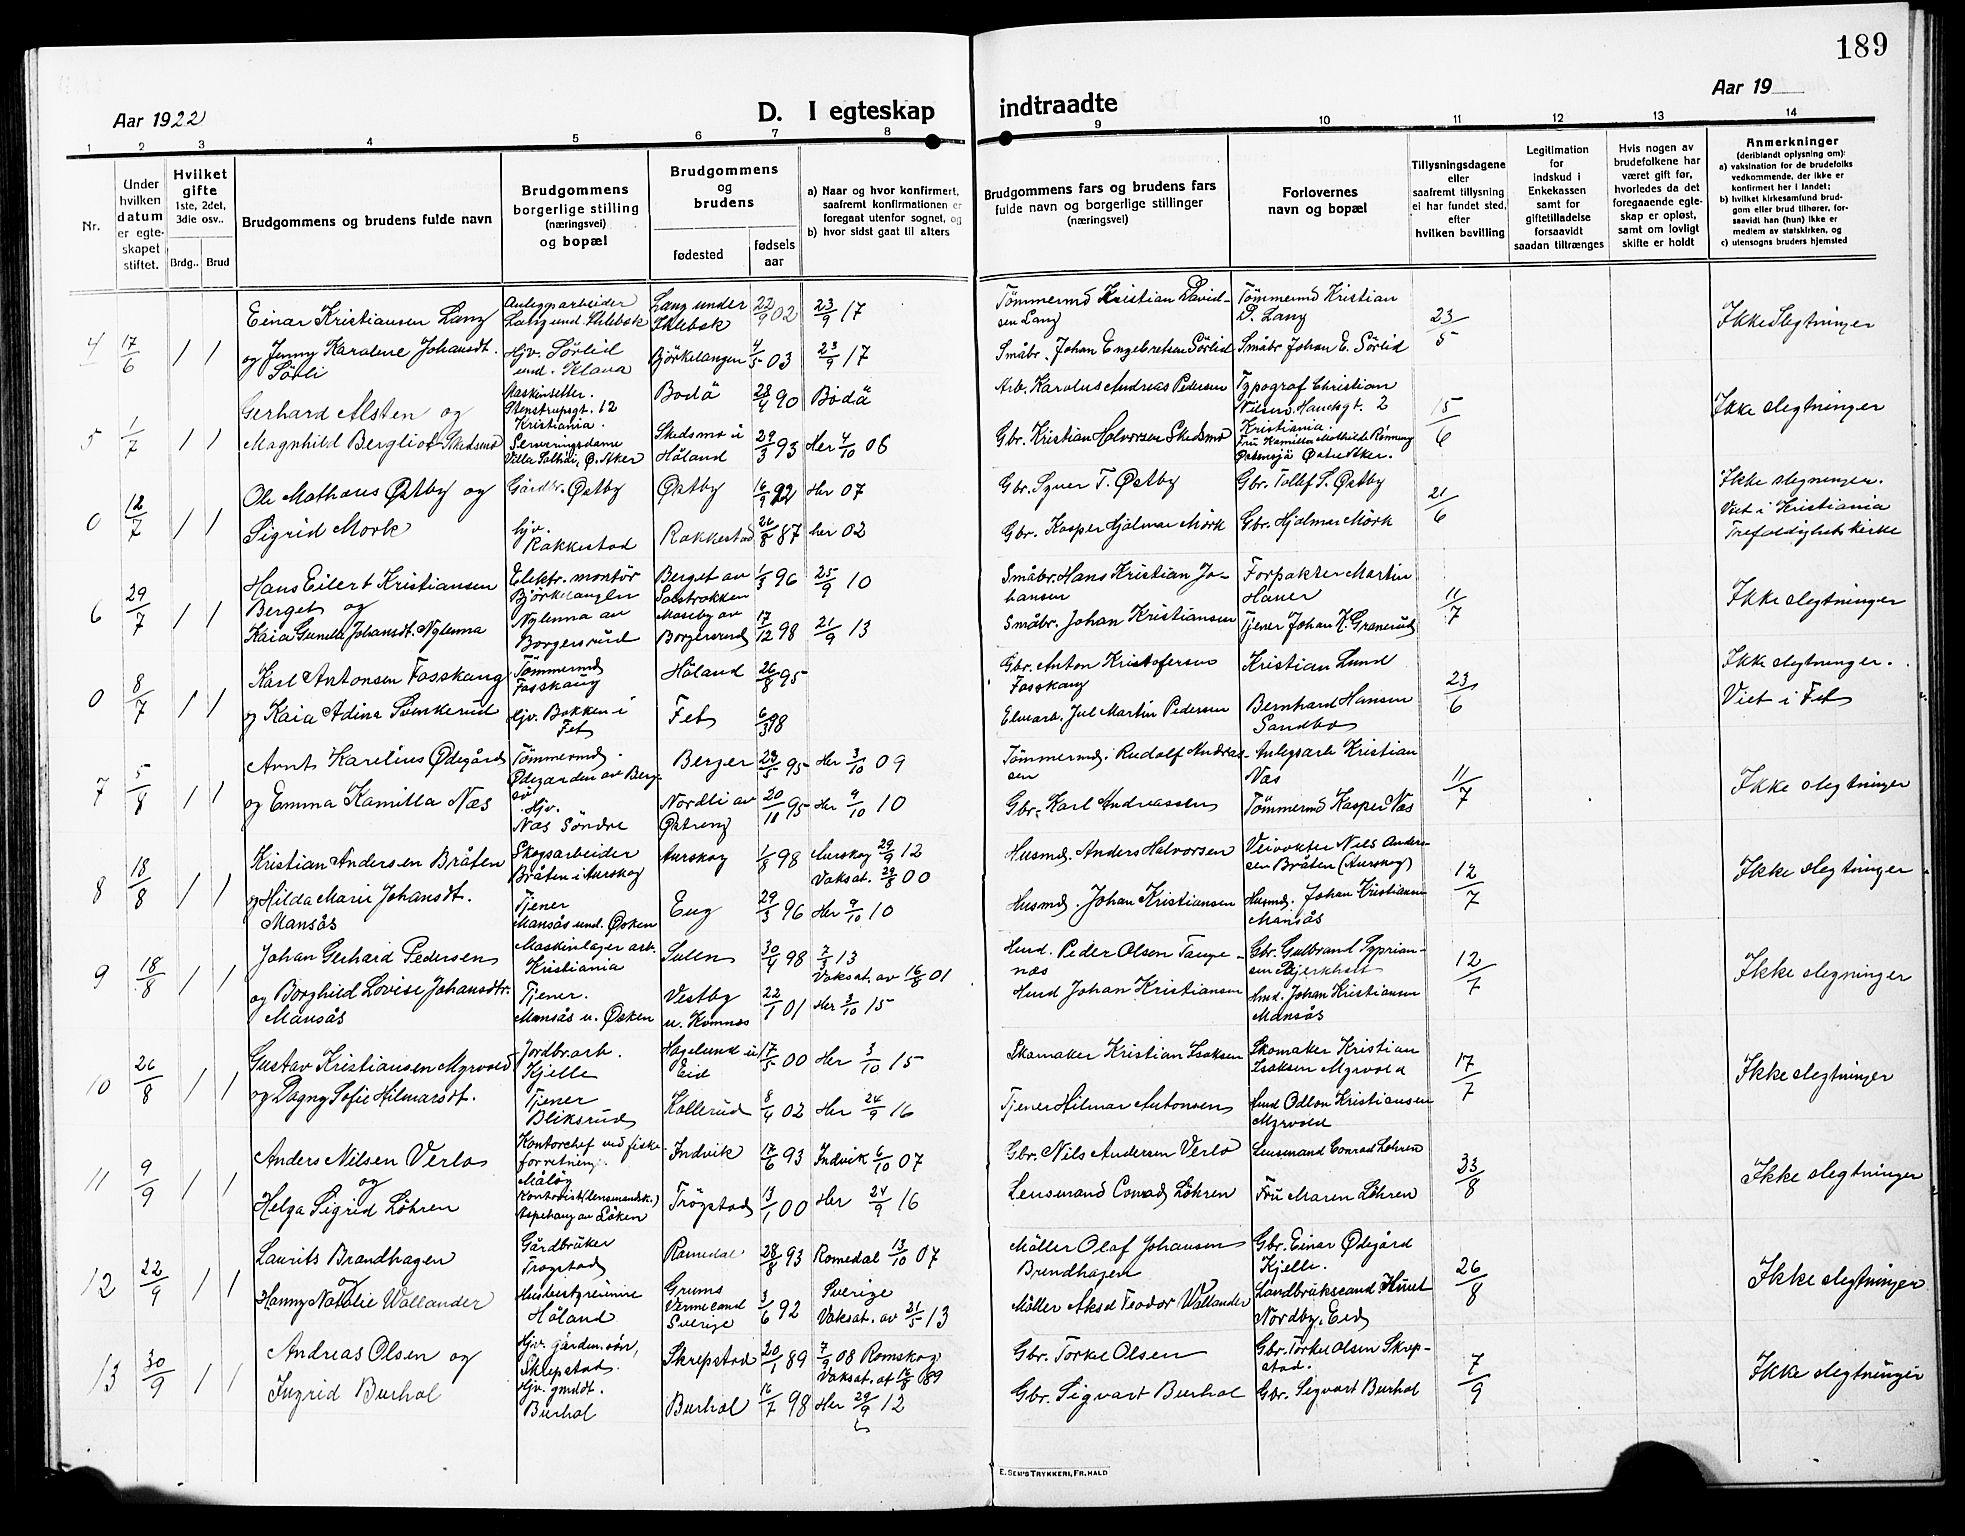 189
Aar 1922
D. I egteskap indtraadte
Aar 19
1 2 3 4 5 6 7 8 9 10 11 12 13 14
Nr.
Under hvilken datum er egteskapet stiftet.
Hvilket gifte 1ste, 2det, 3die osv..
Brdg.. Brud
Brudgommens og brudens fulde navn
Brudgommens borgerlige stilling (næringsvei) og bopæl
Brudgommens og brudens
fødested
fødsels aar
a) Naar og hvor konfirmert, saafremt konfirmationen er foregaat utenfor sognet, og
b) hvor sidst gaat til alters
Brudgommens fars og brudens fars fulde navn og borgerlige stillinger (næringsvei)
Forlovernes navn og bopæl
Tillysningsdagene eller saafremt tillysning ei har fundet sted, efter hvilken bevilling
Legitimation for indskud i Enkekassen samt for giftetilladelse forsaavidt saadan tiltrænges
Hvis nogen av brudefolkene har været gift før, hvorledes da det foregaaende egteskap er opløst, samt om lovligt skifte er holdt
Anmerkninger (deriblandt oplysning om):
a) vaksination for de brudefolks vedkommende, der ikke er konfirmert her i landet;
b) hvilket kirkesamfund brudgom eller brud tilhører, forsaavidt han (hun) ikke er medlem av statskirken, og
c) utensogns bruders hjemsted
4 17/6 1 1
Einar Kristiansen Lang
og Jenny Karoline Johansdt. Sörli
Anlegsarbeider
Hjv. Sörlid
Lang under
Björkelangen
22/9 02 23/9 17
4/5 03 23/9 17
Tömmermd Kristian Davidsen Lang
Småbr. Johan Engebretsen Sörlid
Tömmermd Kristian D. Lang
Småbr Johan E. Sörlid
23/5
Ikke Slegtninger
5 1/7 1 1
Gerhard Alsten og
Magnhild Bergliot Skedsmo
Maskinsetter. Stenstrupsgt. 12 Kristiania.
Serveringsdame
Bodö 28/4 90 Bodö
Skedsmo i Höland 29/3 93 Her 4/10 08
Arb. Karolus Andreas Pedersen
Gbr. Kristian Halvorsen Skedsmo
Typograf Christian Nilsen Hauchsgt. 2 Kristiania.
Fru Kamilla Mathilde Rönning
15/6
Ikke slegtninger
0 12/7 1 1
Ole Mathæus Østby og
Sigrid Mork
Gårdbr. Østby
hjv. Rakkestad
Østby 16/9 92 Her 07
Rakkestad 26/8 87 her 02
Gbr. Syver T. Østby
Gbr. Kasper Hjalmar Mörk
Gbr. Tollef S. Østby
Gbr. Hjalmar Mörk
21/6
Ikke slegninger.
Viet i Kristiania
Trefoldighets kirke
6 29/7 1 1
Hans Eilert Kristiansen Berget og
Kaia Gunella Johansdt. Nylenna
Elektr. montör Björkelangen
Nylenna av Borgersrud
Berget av 1/3 96 25/9 10
Moseby av Borgersrud 17/12 98 21/9 13
Småbr. Hans Kristian Johansen
Småbr. Johan Kristiansen
Forpakter Martin Haner
Tjener Johan K. Granerud
11/7
Ikke slegtninger
0 8/7 1 1
Karl Antonsen Fosskaug
og Kaia Adina Svenkerud
Tömmermd Fosskaug
Hjv. Bakken i Fet
Höland 26/8 95
Fet 6/3 98
Gbr. Anton Kristofersen Fosskaug
Elvearb. Jul Martin Pedersen
Kristian Lund
Bernhard Hansen Sandbo
23/6
Ikk slegtninger.
Viet i Fet
7 5/8 1 1
Arnt Karelius Ødegård
og Emma Kamilla Næs
Tömmermd.
Hjv. Næs Söndre
Berger 23/5 95 Her 3/10 09
Nordli av Østreng 20/11 95 Her 9/10 10
Tömmermd. Rudolf Andreassen
Gbr. Karl Andreassen
Anlegsarb Kristian Næs
Tömmermd Kasper Næs
11/7
Ikke slegtninger
8 18/8 1 1
Kristian Andersen Bråten
og Hilda Marie Johansdt. Mansås
Skogsarbeider Bråten i Aurskog
Tjener Mansås und. Ösken
Aurskog 1/8 98 Aurskog 29/9 12
Vaksat. 29/8 00
Eng 29/3 96 Her 9/10 10
Husmd. Anders Halvorsen
Husmd. Johan Kristiansen
Veivokter Nils Andersen Bråten (Aurskog)
Husmd. Johan Kristiansen Mansås
12/7
Ikke slegtninger
9 18/8 1 1
Johan Gerhard Pedersen
og Borghild Lovise Johansdtr. Mansås
Maskinlager arb. Kristiania
Tjener. Mansås u. Ösken
30/4 98
Vaksat. av 16/8 01
Vestby u. Komnæs 22/1 01 Her 3/10 15
Hmd. Peder Olsen Tangenæs
Hmd Johan Kristiansen
Gbr. Gulbrand Sypriansen Bjerkholt
Hmd. Johan Kristiansen Mansås
12/7
Ikke slegninger
10 26/8 1 1
Gustav Kristiansen Myrvold
og Dagny Sofie Hilmarsdt.
Jordbr.arb. Kjelle
Tjener Bliksrud
Hagelund i Eid 17/5 00 Her 3/10 15
Kollerud 8/4 02 Her 24/9 16
Skomaker Kristian Isaksen
Tjener Hilmar Antonsen
Skomaker Kristian Isaksen Myrvold
Hmd Odlon Kristiansen Myrvold
17/7
Ikke slegtninger
11 9/9 1 1
Anders Nilsen Verlo
og
Helga Sigrid Löhren
Kontorchef ved fiskeforretning Måløy
Kontorist (lensmandsk.)
Indvik 12/6 93 Indvik 6/10 07
Trögstad 13/1 00 Her 24/9 16
Gbr. Nils Andersen Verlo
Lensmand Conrad Löhren
Lensmand Conrad Løhren
Fru Maren Löhren
23/8
Ikke slegtninger
12 22/9 1 1
Laurits Brandhagen
og
Hanny Natalie Wallander
Gårdbruker Trogstad
Husbestyrerinne Höland
Romedal 28/8 93 Romedal 13/10 07
Grums Vermland Sverige 3/6 92 Sverige
Vaksat. av 21/5 13
Möller Olaf Johansen Brendhagen
Möller Aksel Teodor Wallander
Gbr. Einar Ødegård Kjelle.
Landbrukscand Knut Nordby, Eid
26/8
Ikke slegtninger
13 30/9 1 1
Andreas Olsen og
Ingrid Burhol
Hjv. gårdm. sön, Skrepstad.
Hjv. gmdt. Burhol
Skrepstad 20/1 89 7/9 08 Romskog
Burhol 16/7 98 Her 29/9 12
Gbr. Torkel Olsen
Gbr. Sigvart Burhol
Gbr. Torkel Olsen Skrepstad.
Gbr. Sigvart Burhol
7/9
Ikke slegtninger
E. SEM'S TRYKKERI, FR.HALD